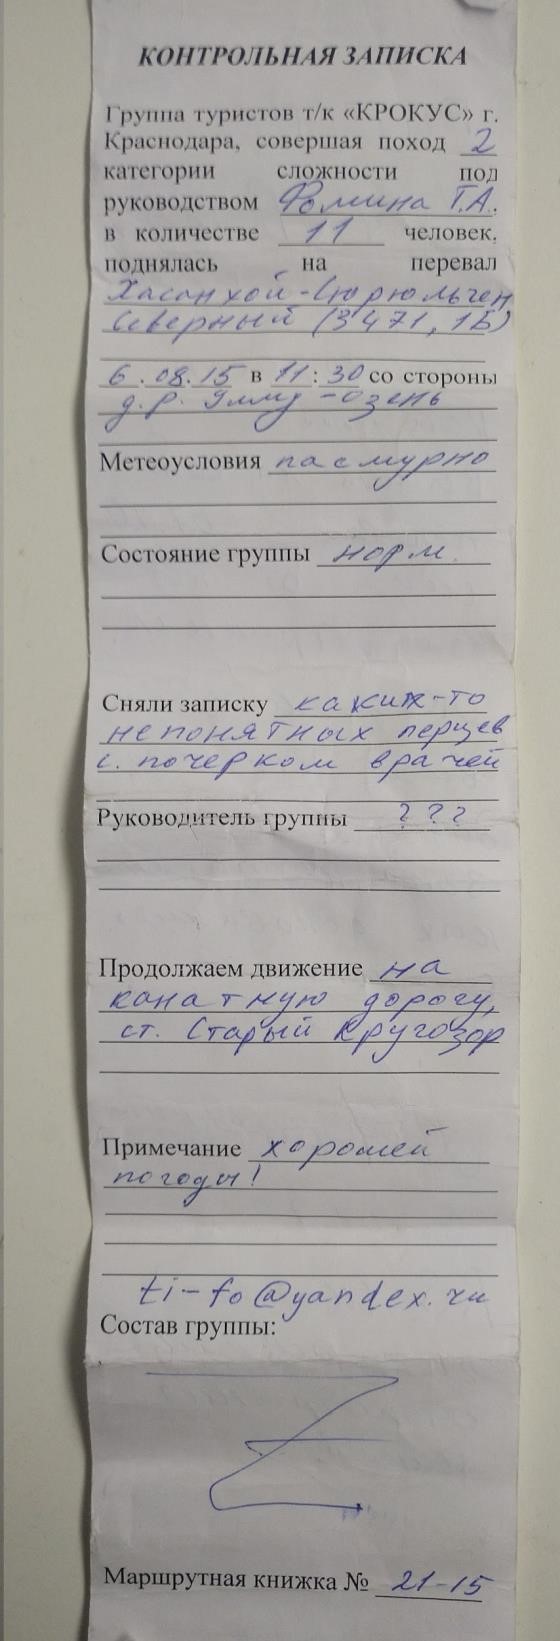 КОНТРОЛЬНАЯ ЗАПИСКА
Группа туристов т/к «КРОКУС» г.
Краснодара, совершая поход 2
категории сложности под
руководством Фомина Т.А.
в количестве 11 человек,
поднялась на перевал
Хасанкой-Сюрюльген
Северный (3471, 1Б)
6.08.15 в 11:30 со стороны
д.р. Уллу-Озень
Метеоусловия пасмурно
Состояние группы норм.
Сняли записку каких-то
непонятных перцев
с почерком врачей
Руководитель группы ???
Продолжаем движение на
канатную дорогу,
ст. Старый Кругозор
Примечание хорошей
погоды!
ti-fo@yandex.ru
Состав группы:
Маршрутная книжка № 21-15